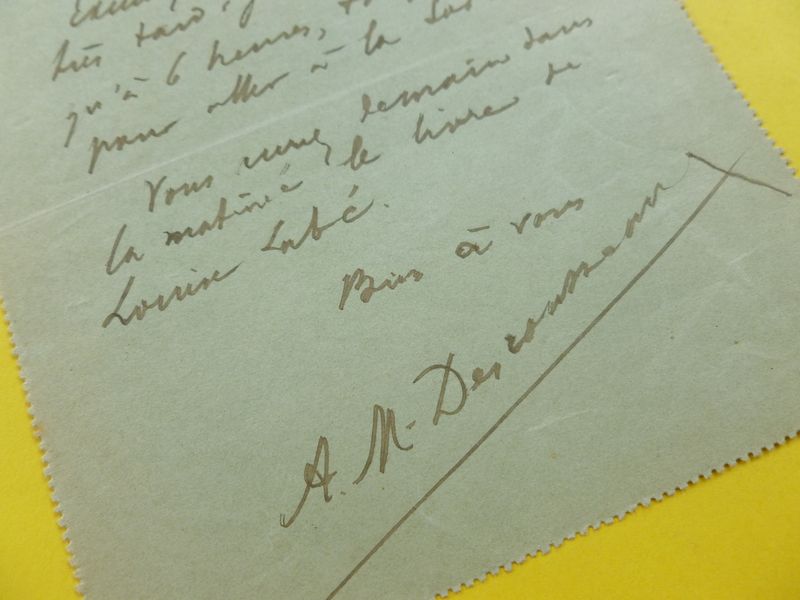 très tard, j
qu'à 6 heures,
pour aller à la
Vous aurez demain dans
la matinée le livre de
Louise Labé.
Bien à vous
A. M. Desrousseaux